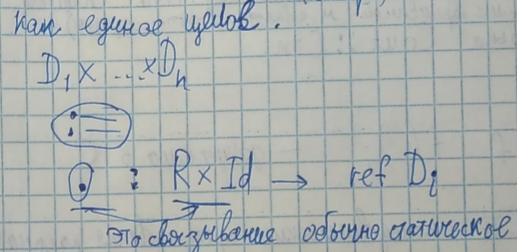 как единое целое.
D₁ × ... × Dₙ
:
. : R × Id → ref Dᵢ
это связывание обычно статическое